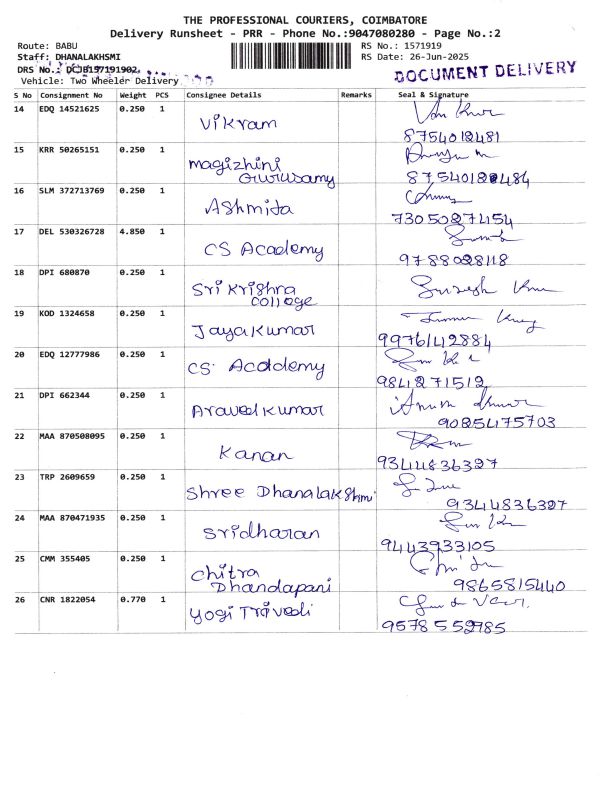 THE PROFESSIONAL COURIERS, COIMBATORE
Delivery Runsheet - PRR - Phone No.:9047080280 - Page No.:2
Route: BABU
RS No.: 1571919
Staff: DHANALAKHSMI
RS Date: 26-Jun-2025
DRS No.: DCJB157191902
DOCUMENT DELIVERY
Vehicle: Two Wheeler Delivery
S No Consignment No Weight PCS Consignee Details Remarks Seal & Signature
14 EDQ 14521625 0.250 1
Vikram
8754012481
15 KRR 50265151 0.250 1
Magizhini
Gurusamy
16 SLM 372713769 0.250 1
Ashmita
7305027454
17 DEL 530326728 4.850 1
CS Academy
9788028118
18 DPI 680870 0.250 1
Sri Krishna
college
19 KOD 1324658 0.250 1
Jayakumar
9976142884
20 EDQ 12777986 0.250 1
CS Academy
9841271512
21 DPI 662344 0.250 1
Aravedkumar
9025475703
22 MAA 870508095 0.250 1
Kanan
9344836327
23 TRP 2609659 0.250 1
Shree Dhanalakshmi
9344836327
24 MAA 870471935 0.250 1
Sridharan
9443933105
25 CMM 355405 0.250 1
Chitra
Dhandapani
9865815440
26 CNR 1822054 0.770 1
Yogi Trivedi
9578552785